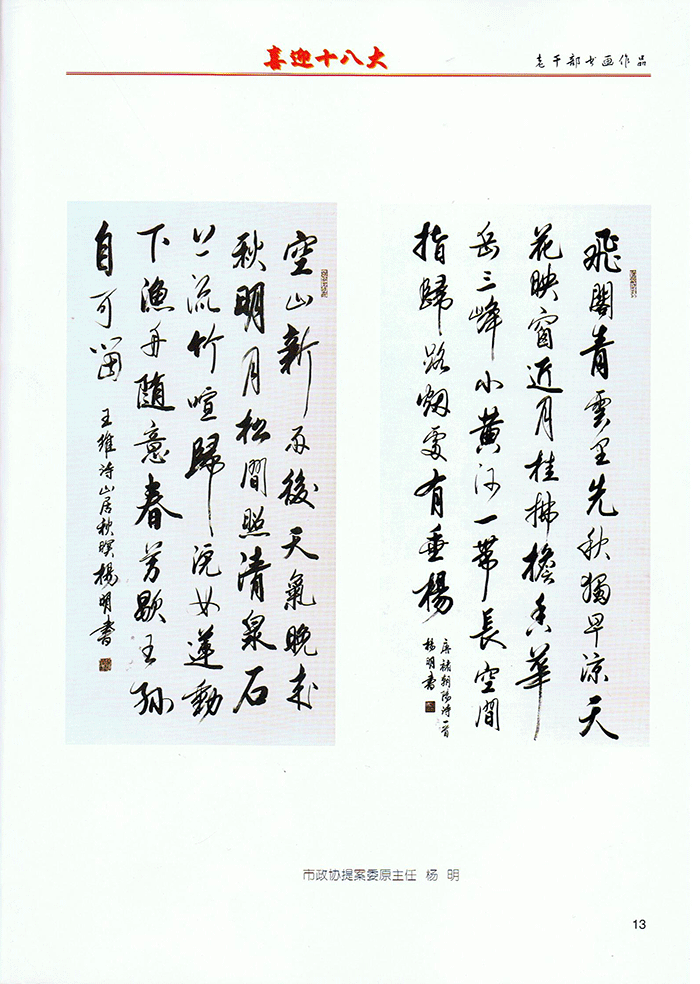 喜迎十八大
老干部书画作品
飛閣青雲里先秋獨早涼天
花映窗近月桂拂檐香華
岳三峰小黄河一帶長空間
指歸路烟處有垂楊
唐褚朝陽诗一首
楊明書
空山新雨後天氣晚来
秋明月松間照清泉石
上流竹喧歸浣女蓮動
下漁舟隨意春芳歇王孫
自可留
王維诗山居秋暝楊明書
市政协提案委原主任 杨 明
13